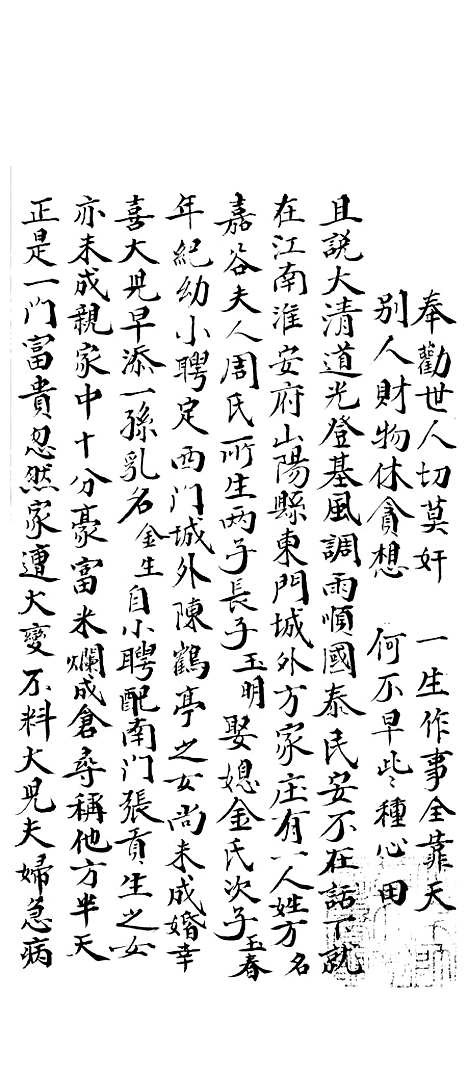 奉勸世人切莫奸　一生作事全靠天
別人財物休貪想　何不早些種心田
且説大清道光登基風調雨順國泰民安不在話下就
在江南淮安府山陽縣東門城外方家庄有一人姓方名
嘉谷夫人周氏所生两子長子玉明娶媳金氏次子玉春
年紀幼小聘定西門城外陳鶴亭之女尚未成婚幸
喜大兒早添一孫乳名金生自小聘配南门張貢生之女
亦未成親家中十分豪富米爛成倉尋稱他方半天
正是一门富貴忽然家遭大變不料大兒夫婦急病